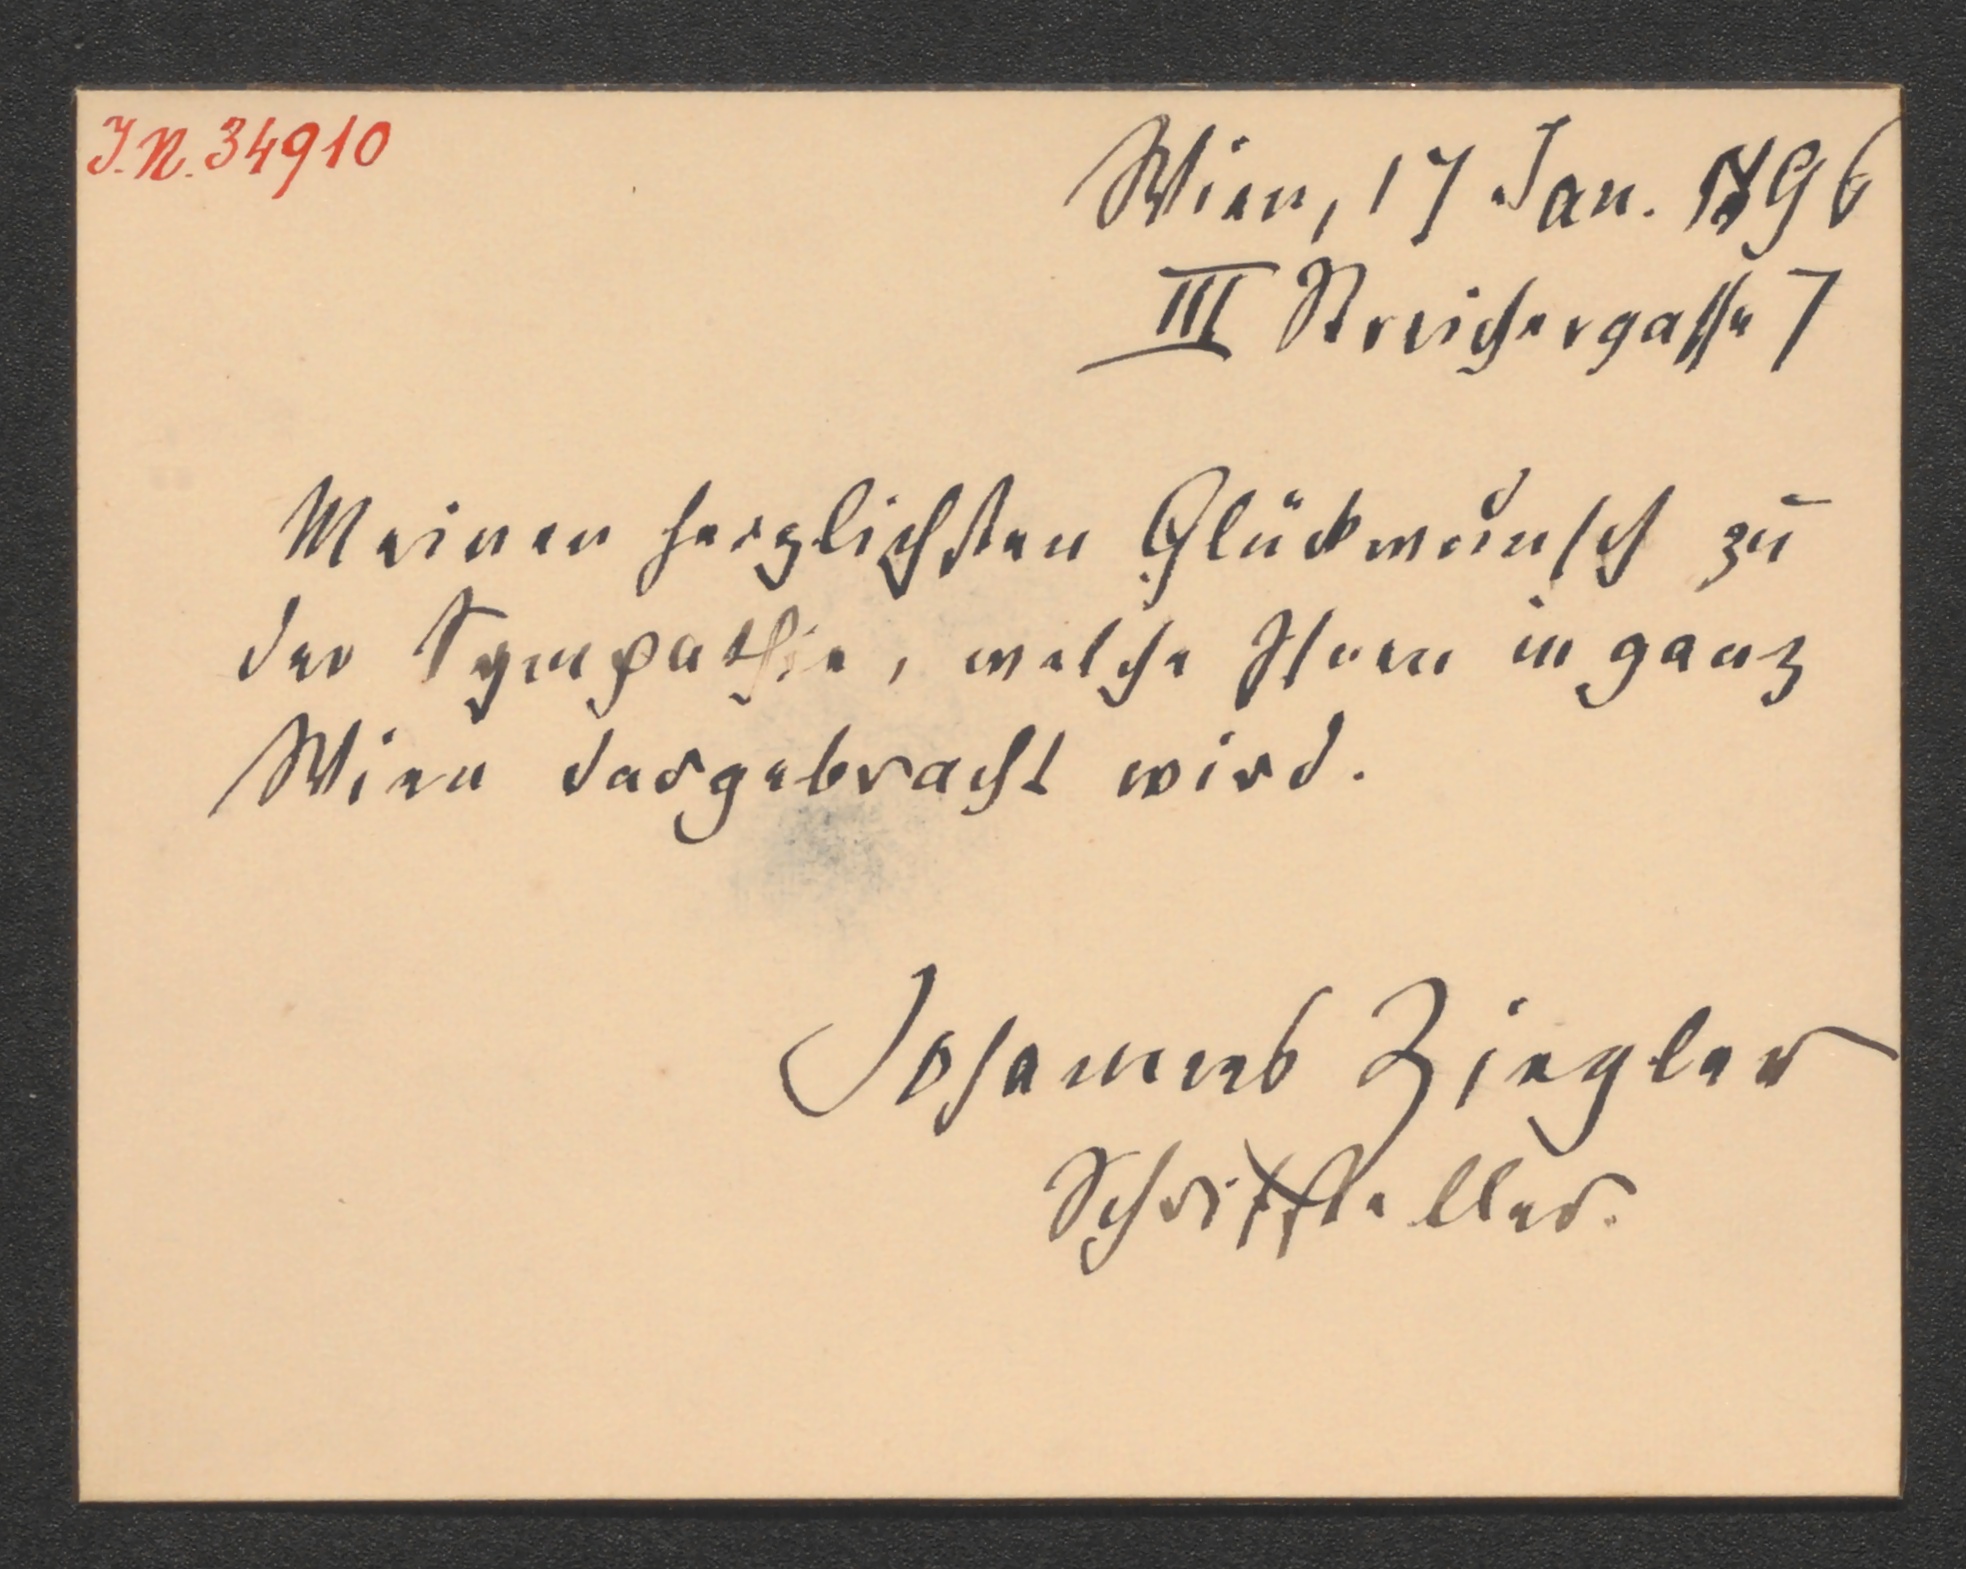 J.N. 34910
Wien, 17 Jan. 1896
III Streichergasse 7
Meinen herzlichsten Glückwunsch zu
der Sympathie, welche Ihnen in ganz
Wien dargebracht wird.
Johannes Ziegler
Schriftsteller.